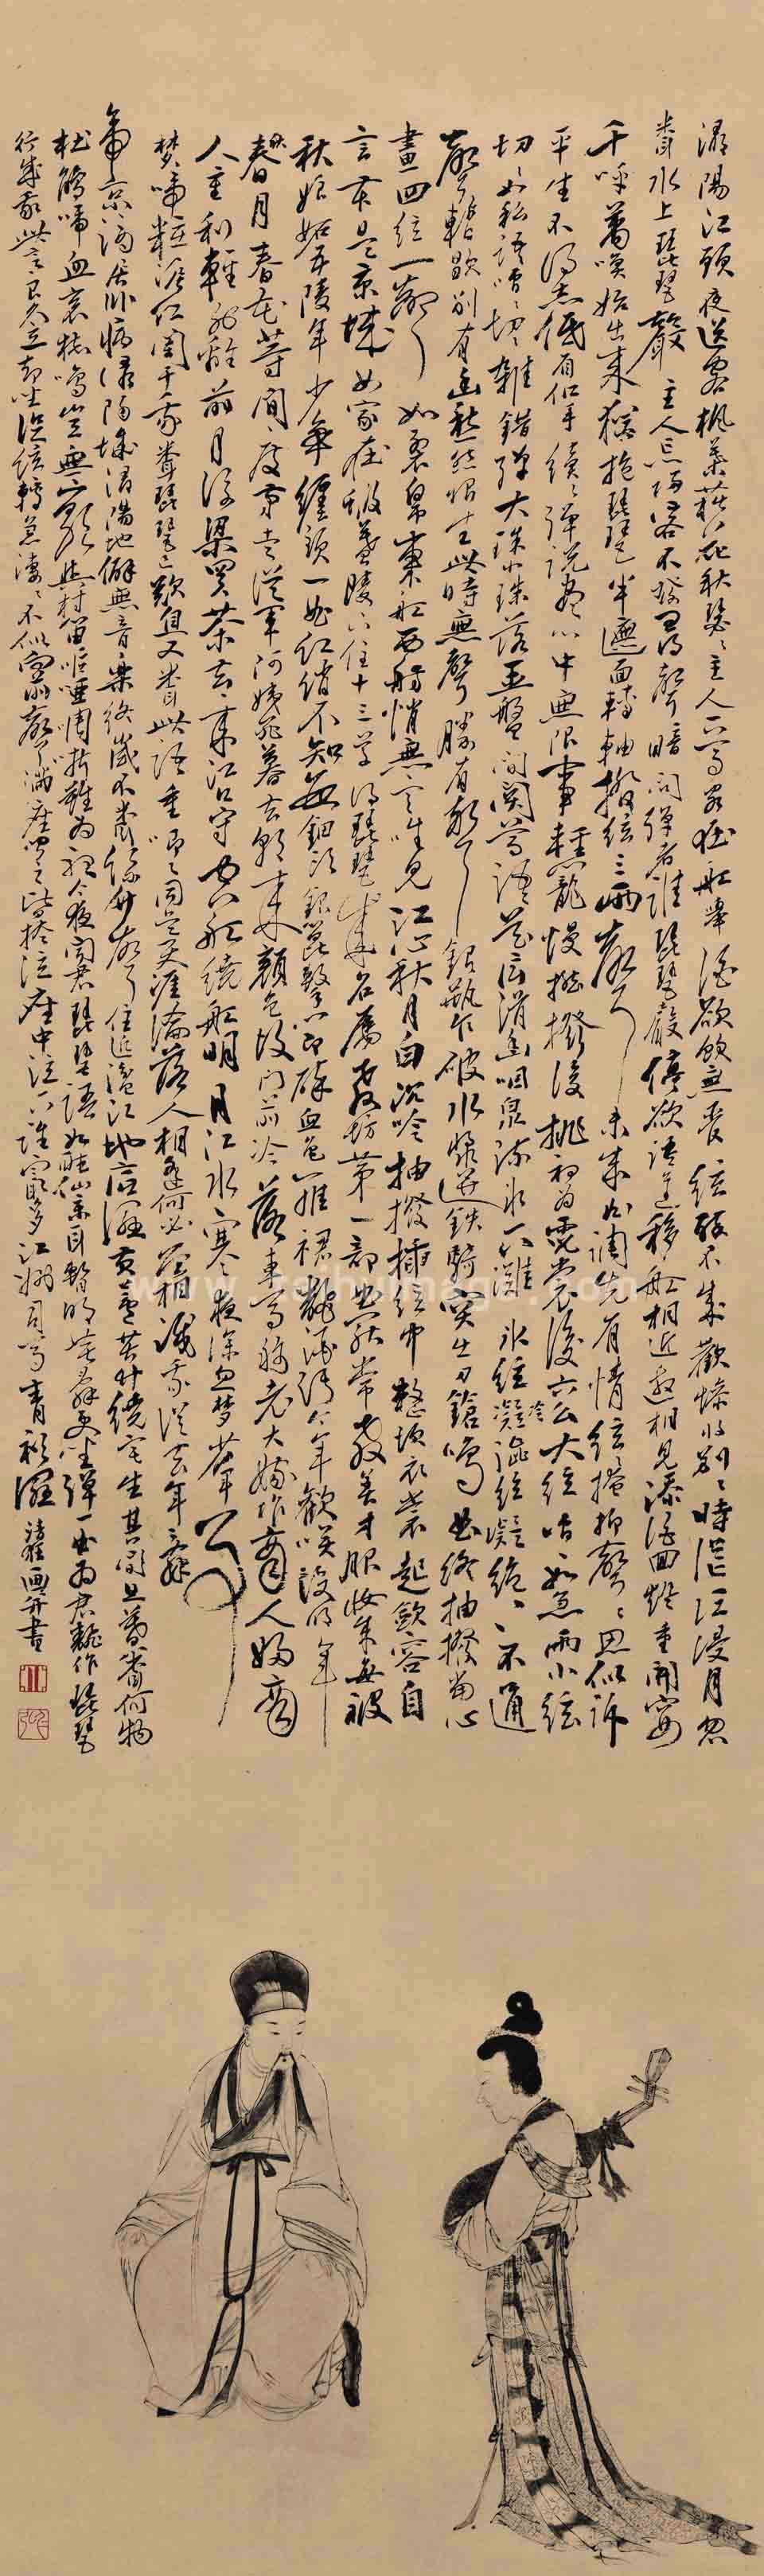 潯陽江頭夜送客楓葉荻花秋瑟瑟主人下馬客在船舉酒欲飲無管絃醉不成歡慘將別別時茫茫江浸月忽
聞水上琵琶聲主人忘歸客不發尋聲暗問彈者誰琵琶聲停欲語遲移船相近邀相見添酒回燈重開宴
千呼萬喚始出來猶抱琵琶半遮面轉軸撥絃三兩聲未成曲調先有情絃絃掩抑聲聲思似訴
平生不得志低眉信手續續彈說盡心中無限事輕攏慢撚撥復挑初為霓裳後六么大絃嘈嘈如急雨小絃
切切如私語嘈嘈切切雜錯彈大珠小珠落玉盤間關鶯語花底滑幽咽泉流氷下灘氷絃冷澀絃凝絕凝絕不通
聲暫歇別有幽愁暗恨生此時無聲勝有聲銀瓶乍破水漿迸鐵騎突出刀鎗鳴曲終抽撥當心
畫四絃一聲如裂帛東船西舫悄無言唯見江心秋月白沉吟抽撥插絃中整頓衣裳起斂容自
言本是京城女家在蝦蟇陵下住十三學得琵琶成名屬教坊第一部曲罷常教善才服妝成每被
秋娘妬五陵年少爭纏頭一曲紅綃不知數鈿頭銀篦擊節碎血色羅裙翻酒污今年歡笑復明年
秋月春花等閒度弟走從軍阿姨死暮去朝來顏色故門前冷落車馬稀老大嫁作商人婦商
人重利輕別離前月浮梁買茶去去來江口守空船繞船明月江水寒夜深忽夢少年事
夢啼粧淚紅闌干我聞琵琶已歎息又聞此語重唧唧同是天涯淪落人相逢何必曾相識我從去年辭
帝京謫居臥病潯陽城潯陽地僻無音樂終歲不聞絲竹聲住近湓江地底濕黃蘆苦竹繞宅生其間旦暮聞何物
杜鵑啼血哀猿鳴豈無山歌與村笛嘔啞啁哳難為聽今夜聞君琵琶語如聽仙樂耳暫明莫辭更坐彈一曲為君翻作琵琶
行感我此言良久立却坐促絃絃轉急淒淒不似向前聲滿座聞之皆掩泣座中泣下誰最多江州司馬青衫濕 清狂画并書